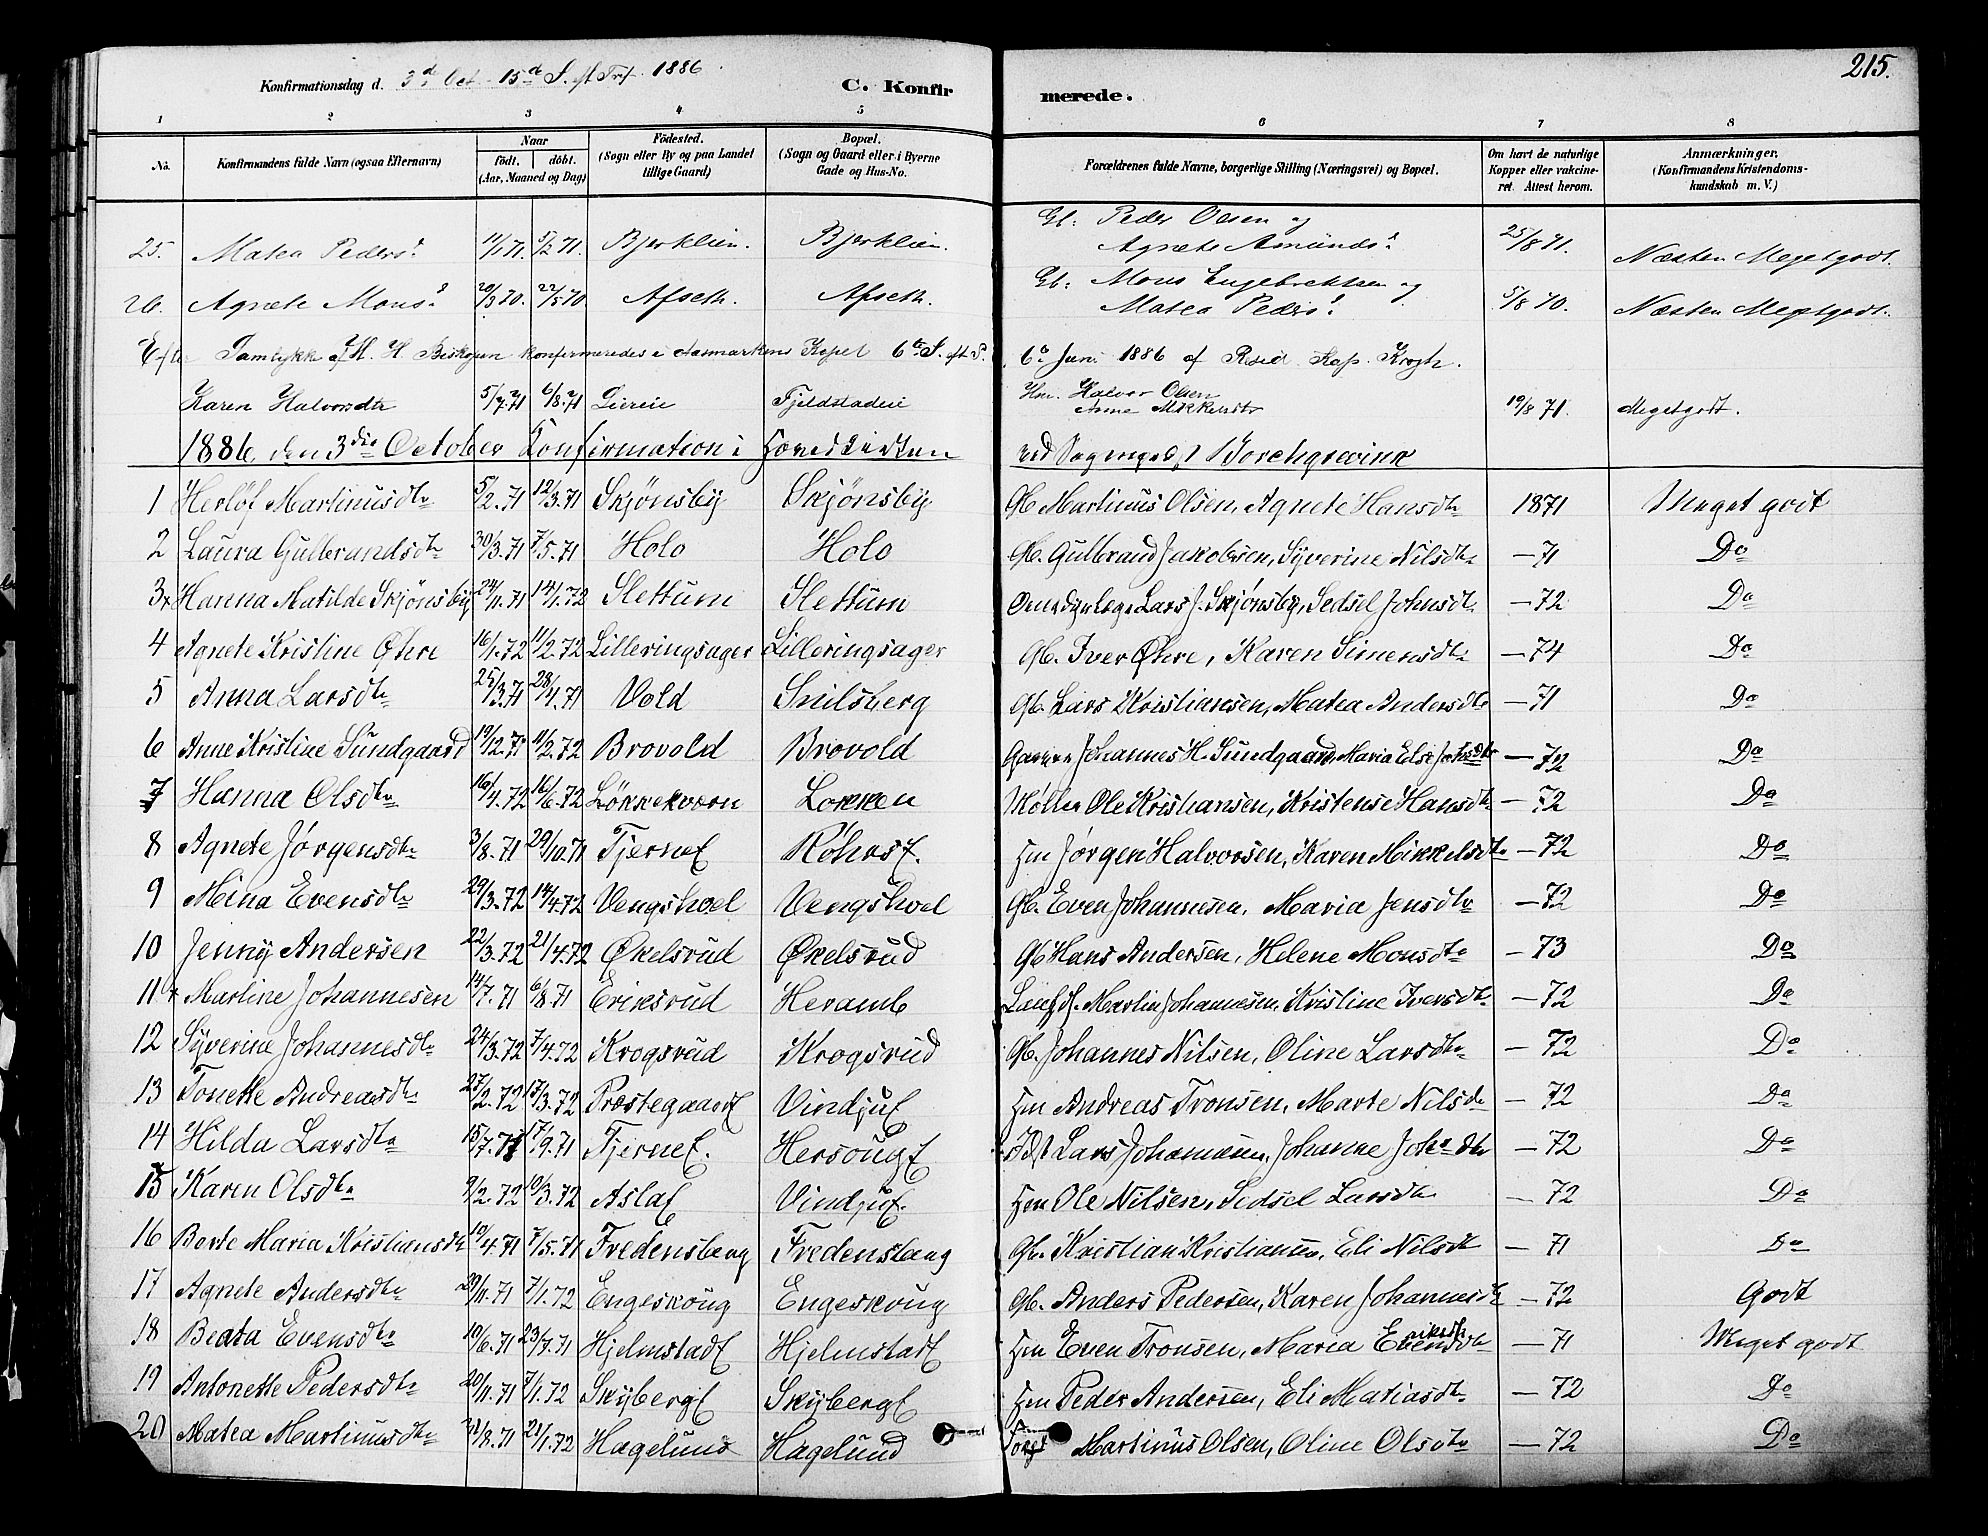 215.
Konfirmationsdag d. 3de Oct. 15de S. eft. Tref. 1886
C. Konfir merede.
1 2 3 4 5 6 7 8
No. Konfirmandens fulde Navn (ogsaa Efternavn) Naar födt. döbt. (Aar, Maaned og Dag) Födested. (Sogn eller By og paa Landet tillige Gaard) Bopæl. (Sogn og Gaard eller i Byerne Gade og Hus-No. Forældrenes fulde Navne, borgerlige Stilling (Næringsvei) og Bopæl. Om havt de naturlige Kopper eller vakcineret. Attest herom. Anmærkninger. (Konfirmandens Kristendomskundskab m. V.)
25. Matea Pedersd. 14/1 71. 5/2 71. Bjerklien. Bjerklien. Gb: Peder Olsen og Agnete Amundsd. 25/8 71. Næsten Megetgodt.
26. Agnete Monsd. 20/3 70. 22/5 70 Afseth. Afseth. Gb: Mons Engebrektsen og Matea Pedersd. 5/8 70. Næsten Megetgodt.
Efter Samtykke af H. H. Biskopen konfirmeredes i Aasmarkens Kapel 6te S. eft. P. 6te Juni 1886 af Resid. Kap. Krogh.
Karen Halvorsdtr 5/7.71 6/8.71 Liereie Fjeldstadeie Hm. Halvor Olsen Anne Mikkelsdtr 19/8 71. Megetgodt.
1886, den 3die October Konfirmation i Hovedkirken ved Sogneprest Borchgrevink
1 Herlöf Martinusdtr 5/2.71 12/3.71 Skjönsby Skjönsby Gb Martinus Olsen, Agnete Hansdtr 1871 Meget godt
2 Laura Gulbrandsdtr 30/3.71 7/5.71 Holo Holo Gb. Gulbrand Jakobsen, Syverine Nilsdtr — 71 Do
3x Hanna Matilde Skjönsby 24/11.71 14/1.72 Slettum Slettum Lars J. Skjönsby, Sedsel Johnsdtr — 72 Do
4 Agnete Kristine Øhre 16/1.72 11/2.72 Lilleringsager Lilleringsager Gb. Iver Øhre, Karen Simensdtr — 74 Do
5 Anna Larsdtr 25/3.71 28/4.71 Vold Snilsberg Gb. Lars Kristiansen, Matea Andersdtr — 71 Do
6 Anne Kristine Sundgaard 19/12.71 11/2.72 Brovold Brovold Garver Johannes H. Sundgaard, Maria Elise Johsdtr — 72 Do
7 Hanna Olsdtr 16/4.72 16/6.72 Lökkekvern Løkken Møller Ole Kristiansen, Kristense Hansdtr — 72 Do
8 Agnete Jørgensdtr 3/8.71 29/10.71 Tjerne Hm Jørgen Halvorsen, Karen Mikkelsdtr — 72 Do
9 Mina Evensdtr 29/3.72 14/4.72 Vengshoel Vengshoel Gb. Even Johannesen, Maria Jensdtr — 72 Do
10 Jenny Andersen 22/3.72 21/4.72 Økelsrud Økelsrud Gb Hans Andersen, Helene Monsdtr — 73 Do
11x Martine Johannesen 14/7.71 6/8.71 Eriksrud Heramb Martin Johannesen, Kristine Iversdtr — 72 Do
12 Syverine Johannesdtr 24/3.72 7/4.72 Krogsrud Krogsrud Gb. Johannes Nilsen, Oline Larsdtr — 72 Do
13 Tonette Andreasdtr 27/2.72 17/3.72 Præstegaard Vindju Hm Andreas Tronsen, Marte Nilsdtr — 72 Do
14 Hilda Larsdtr 15/7.71 17/9.71 Tjerne Hersoug Idst Lars Johannesen, Johanne Johdtr — 72 Do
15 Karen Olsdtr 9/2.72 10/3.72 Asla Vindju Hm Ole Nilsen, Sedsel Larsdtr — 72 Do
16 Berte Maria Kristiansdtr 10/4.71 7/5.71 Fredensbærg Fredensbærg Gb. Kristian Kristiansen, Eli Nilsdt — 71 Do
17 Agnete Andersdtr 29/11.71 7/1.72 Engeskoug Engeskoug Gb. Anders Pedersen, Karen Johannesdtr — 72 Godt
18 Beata Evensdtr 10/6.71 23/7.71 Hjelmstad Hjelmstad Hm Even Tronsen, Maria Evensdtr — 71 Meget godt
19 Antonette Pedersdtr 20/11.71 7/1.72 Skyberg Skyberg Hm Peder Andersen, Eli Matiasdtr — 72 Do
20 Matea Martinusdtr 31/8.71 21/1.72 Hagelund Hagelund Martinus Olsen, Oline Olsdtr — 72 Do